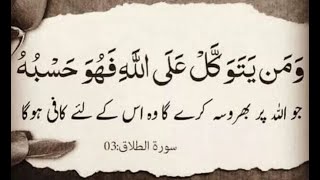 وَمَن يَتَوَكَّلْ عَلَى اللَّهِ فَهُوَ حَسْبُهُ
جو اللہ پر بھروسہ کرے گا وہ اس کے لئے کافی ہوگا
سورۃ الطلاق:03